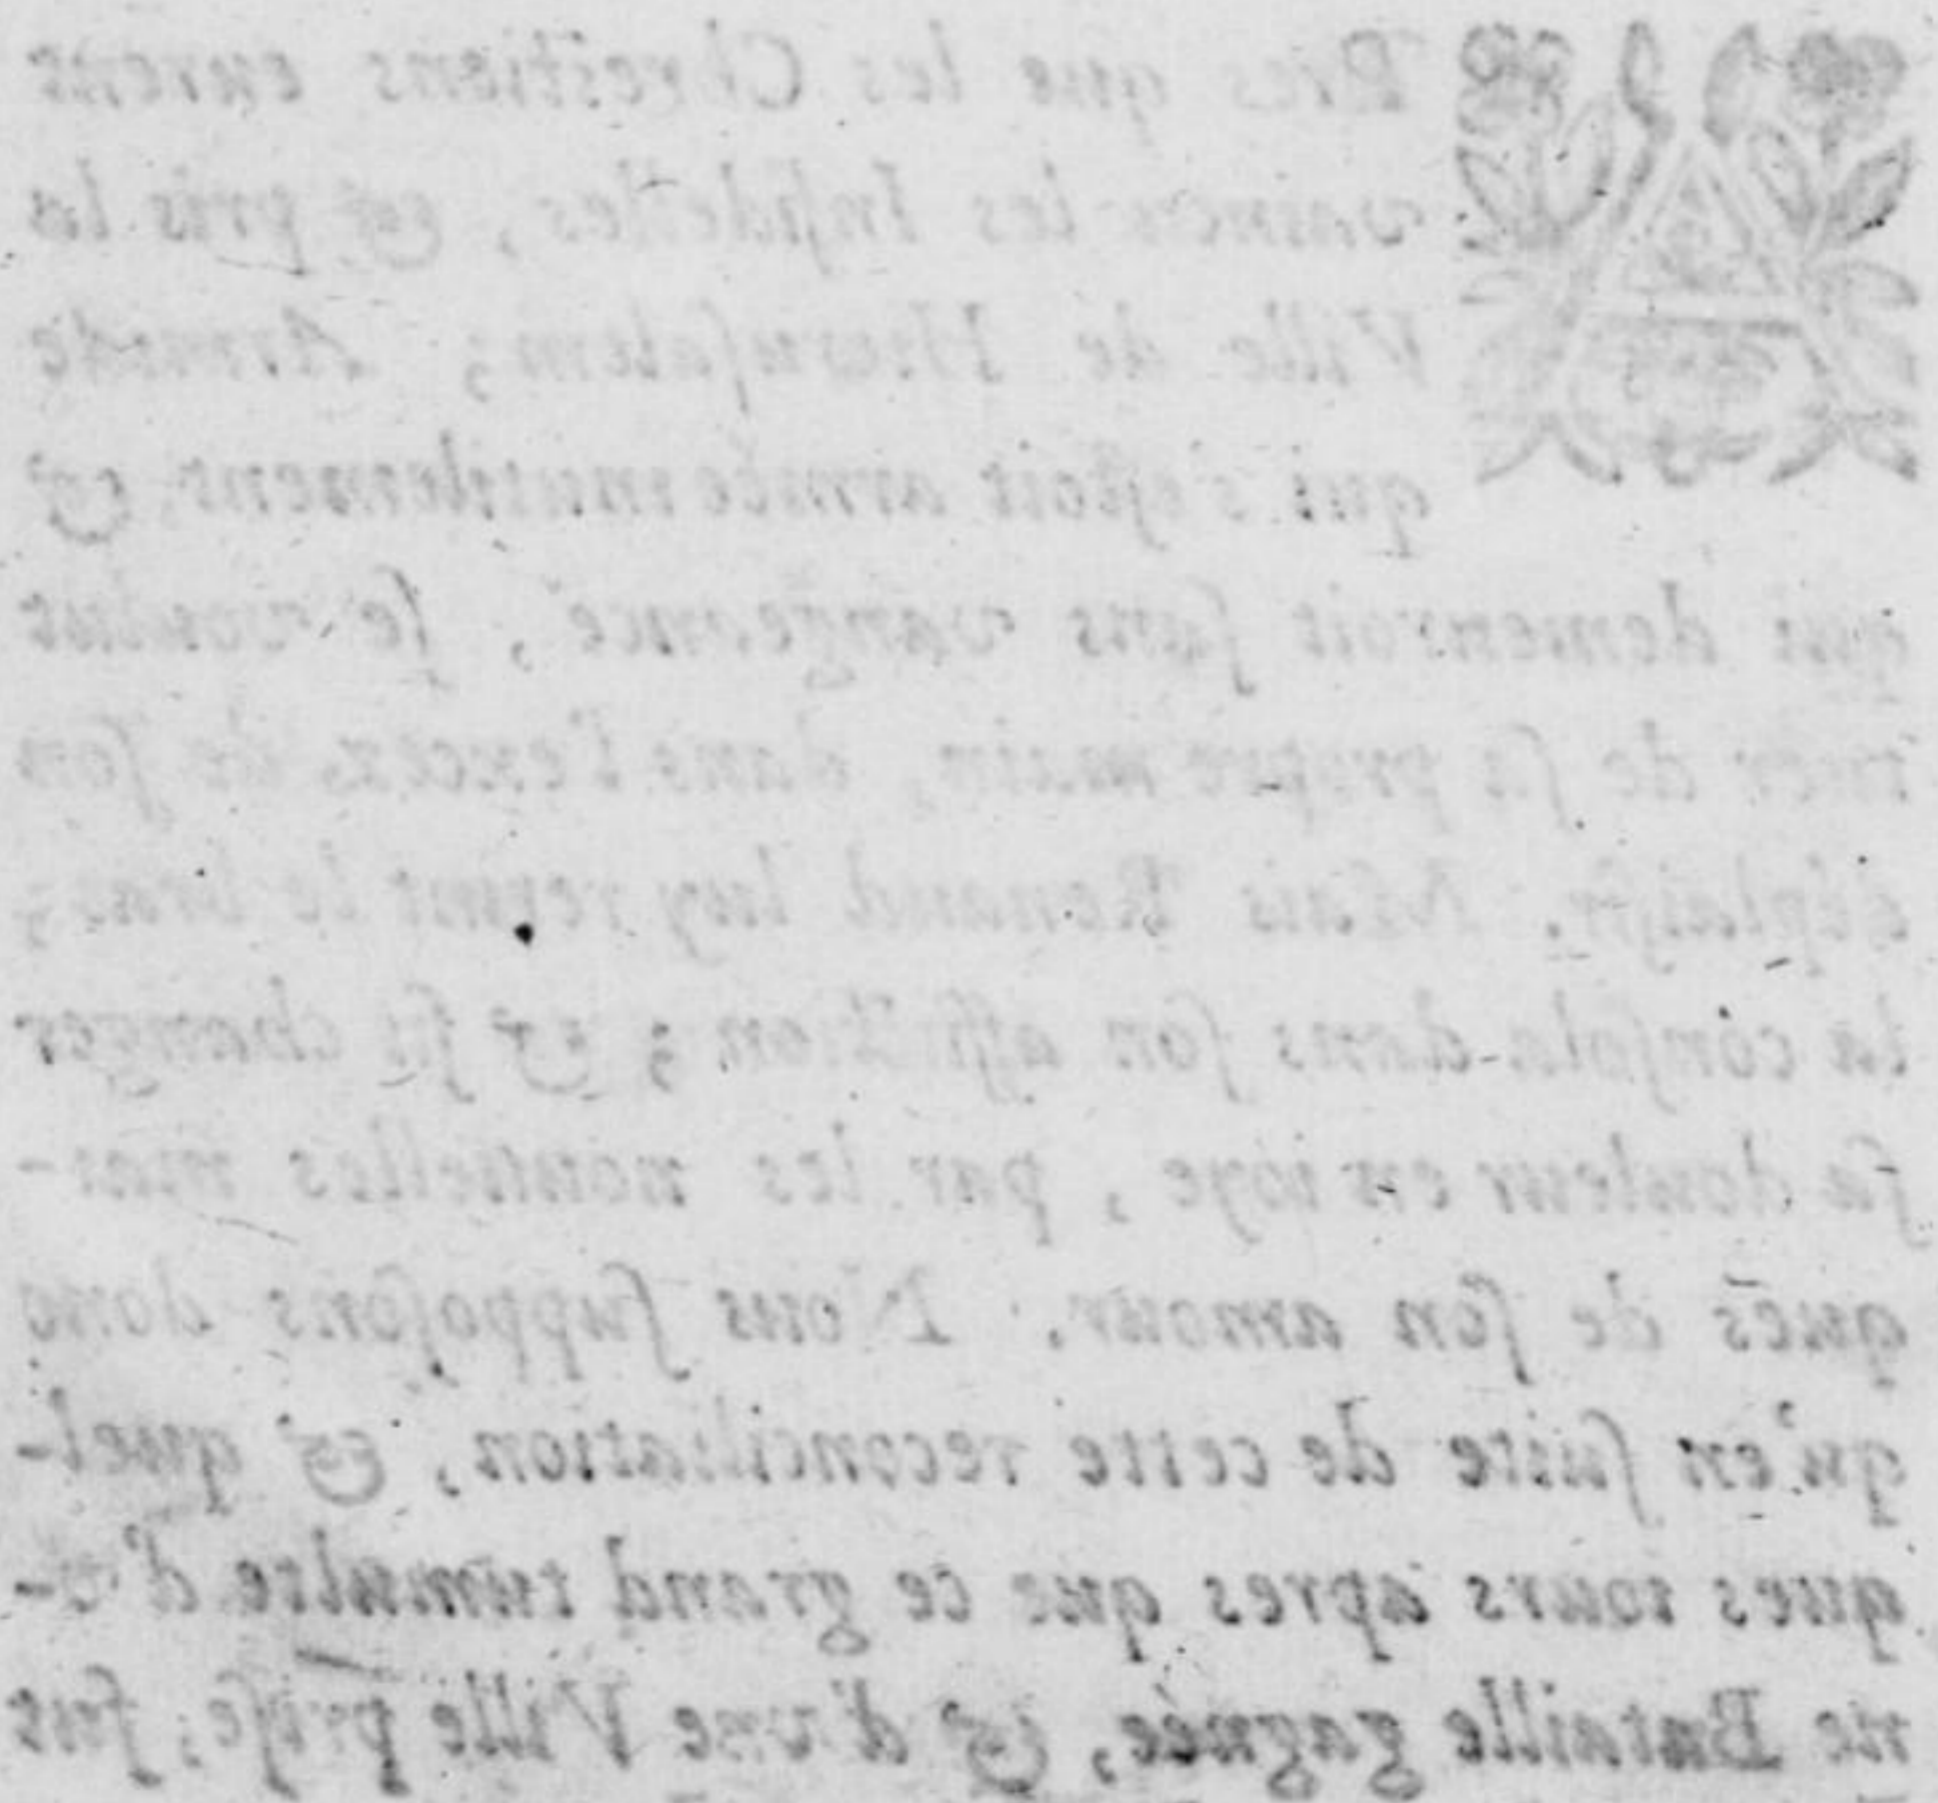 APres que les Chrestiens eurent
vaincu les Infideles, & pris la
Ville de Hierusalem; Armide
qui s'eſtoit armée inutilement, &
qui demeuroit ſans vangeance, ſe voulut
tuer de ſa propre main, dans l'excez de ſon
déplaiſir. Mais Renaud luy retint le bras;
la conſola dans ſon affliction; & fit changer
ſa douleur en ioye, par les nouuelles mar-
ques de ſon amour. Nous ſuppoſons donc
qu'en ſuite de cette reconciliation, & quel-
ques iours apres que ce grand tumulte d'v-
ne Bataille gagnée, & d'vne Ville priſe, fut